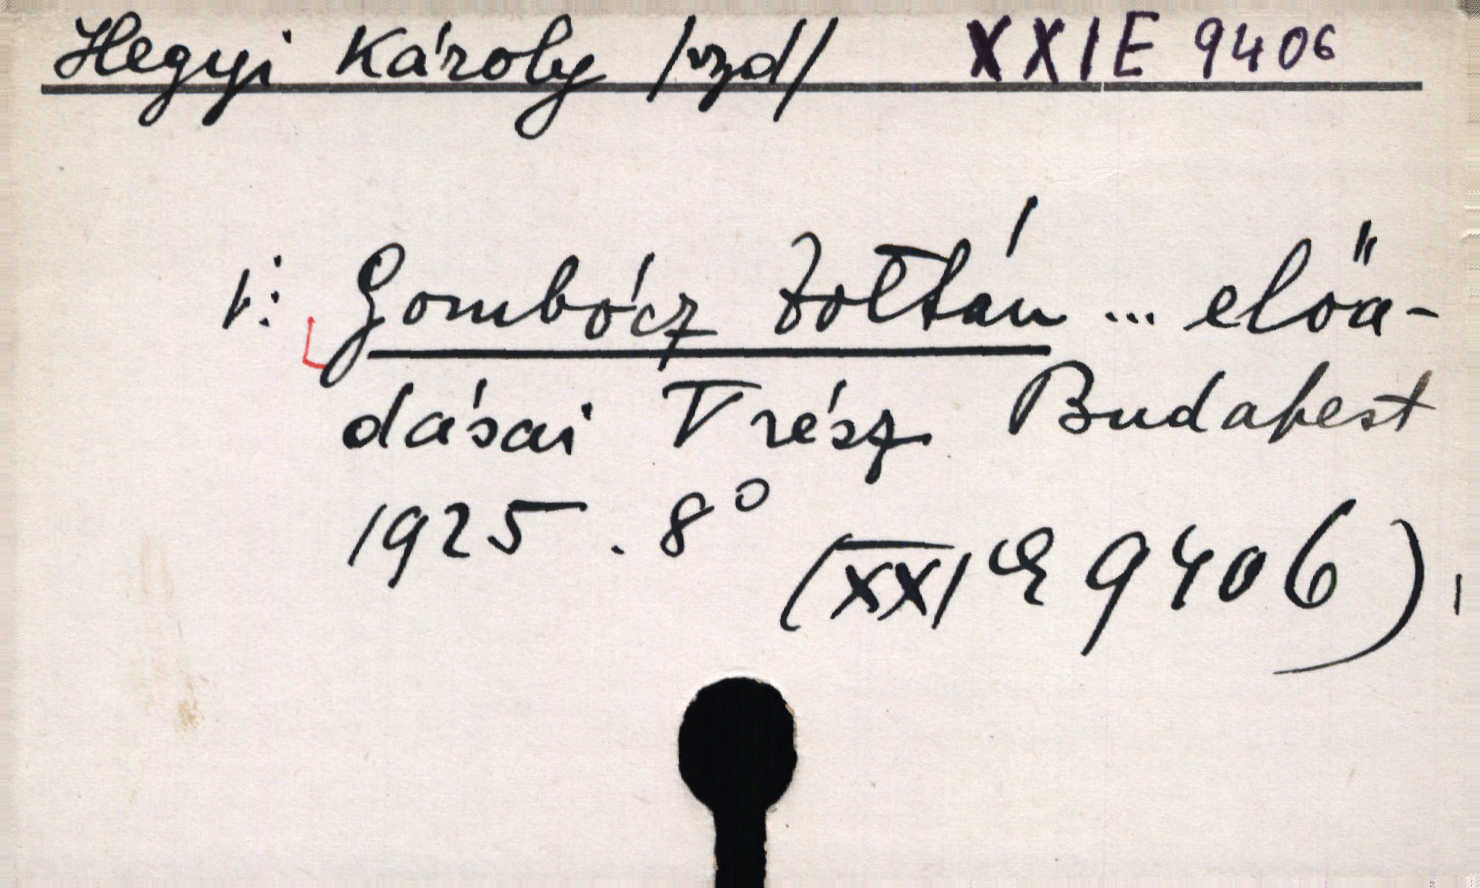 Hegyi Károly /vzd/ XXIE 9406
1: Gombócz Zoltán ... előa-
dásai V rész Budapest
1925. 8°
(XXI E 9406)